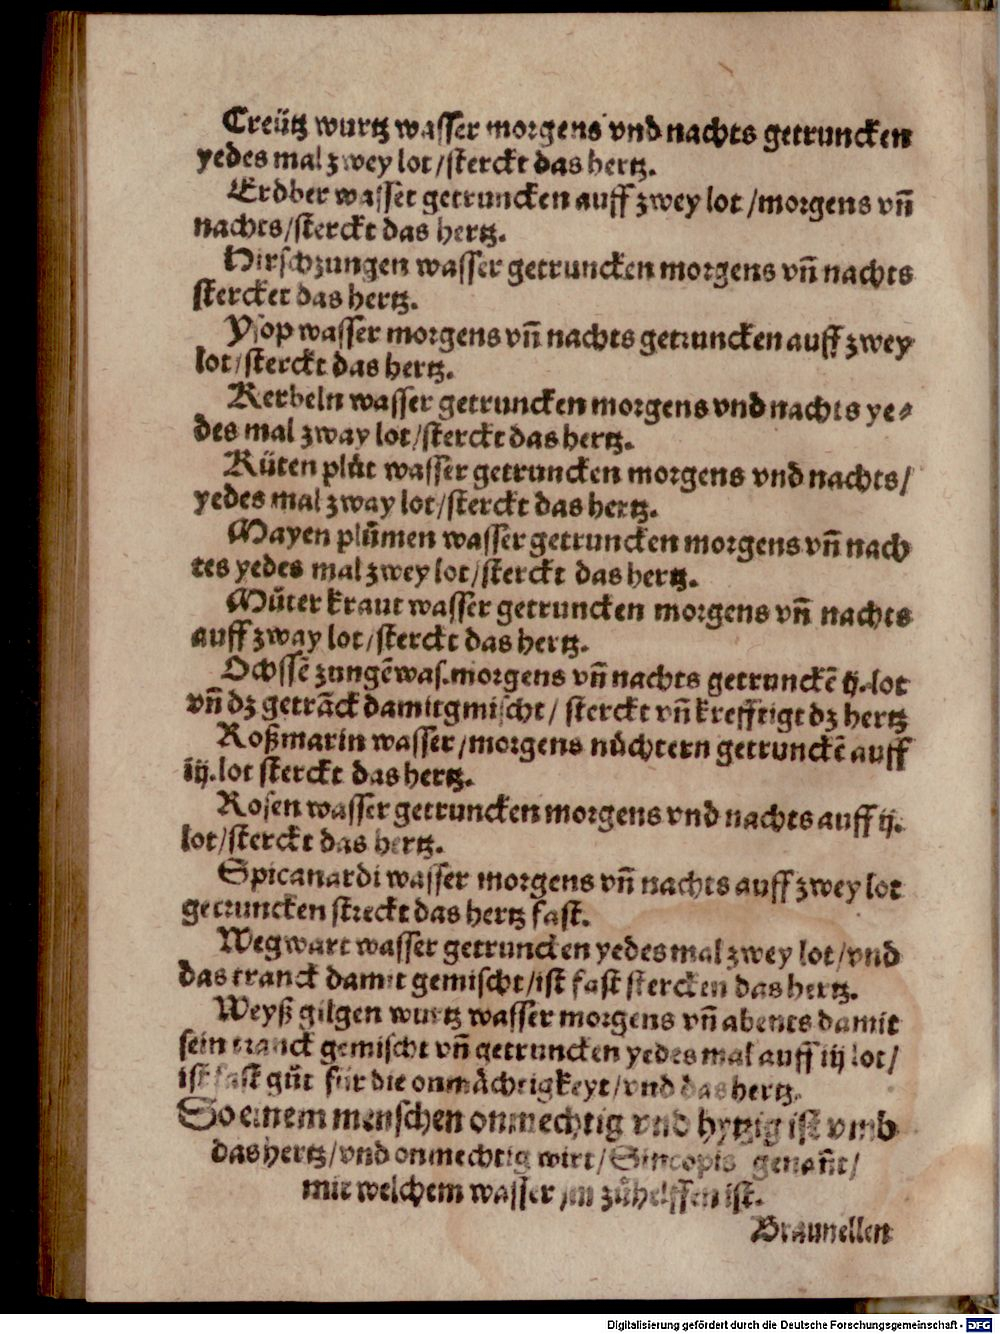 Creütz wurtz wasser morgens vnd nachts getruncken
yedes mal zwey lot/sterckt das hertz.
Erdber wasser getruncken auff zwey lot/morgens vñ
nachts/sterckt das hertz.
Hirschzungen wasser getruncken morgens vñ nachts
stercket das hertz.
Ysop wasser morgens vñ nachts getruncken auff zwey
lot/sterckt das hertz.
Kerbeln wasser getruncken morgens vnd nachts ye⸗
des mal zway lot/sterckt das hertz.
Rüten plůt wasser getruncken morgens vnd nachts/
yedes mal zway lot/sterckt das hertz.
Mayen plůmen wasser getruncken morgens vñ nach
tes yedes mal zwey lot/sterckt das hertz.
Můter kraut wasser getruncken morgens vñ nachts
auff zway lot/sterckt das hertz.
Ochssē zungē was. morgens vñ nachts getrunckē ij. lot
vñ dz getrāck damit gmischt/ sterckt vñ krefftigt dz hertz
Roßmarin wasser/morgens nůchtern getrunckē auff
iij. lot sterckt das hertz.
Rosen wasser getruncken morgens vnd nachts auff ij.
lot/sterckt das hertz.
Spicanardi wasser morgens vñ nachts auff zwey lot
getruncken streckt das hertz fast.
Wegwart wasser getruncken yedes mal zwey lot/vnd
das tranck damit gemischt/ist fast stercken das hertz.
Weyß gilgen wurtz wasser morgens vñ abents damit
sein tranck gemischt vñ getruncken yedes mal auff iij lot/
ist fast gůt für die onmächtigkeyt/vnd das hertz.
So einem menschen onmechtig vnd hytzig ist vmb
das hertz/vnd onmechtig wirt/Sincopis genañt/
mit welchem wasser jm zůhelffen ist.
Braunellen
Digitalisierung gefördert durch die Deutsche Forschungsgemeinschaft - DFG